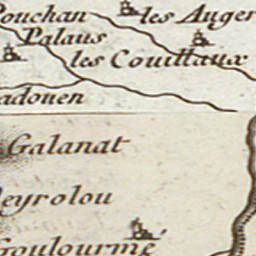 Pouchan les Auger
Palaus
les Couillaux
adouen
Galanat
eyrolou
Goulourme